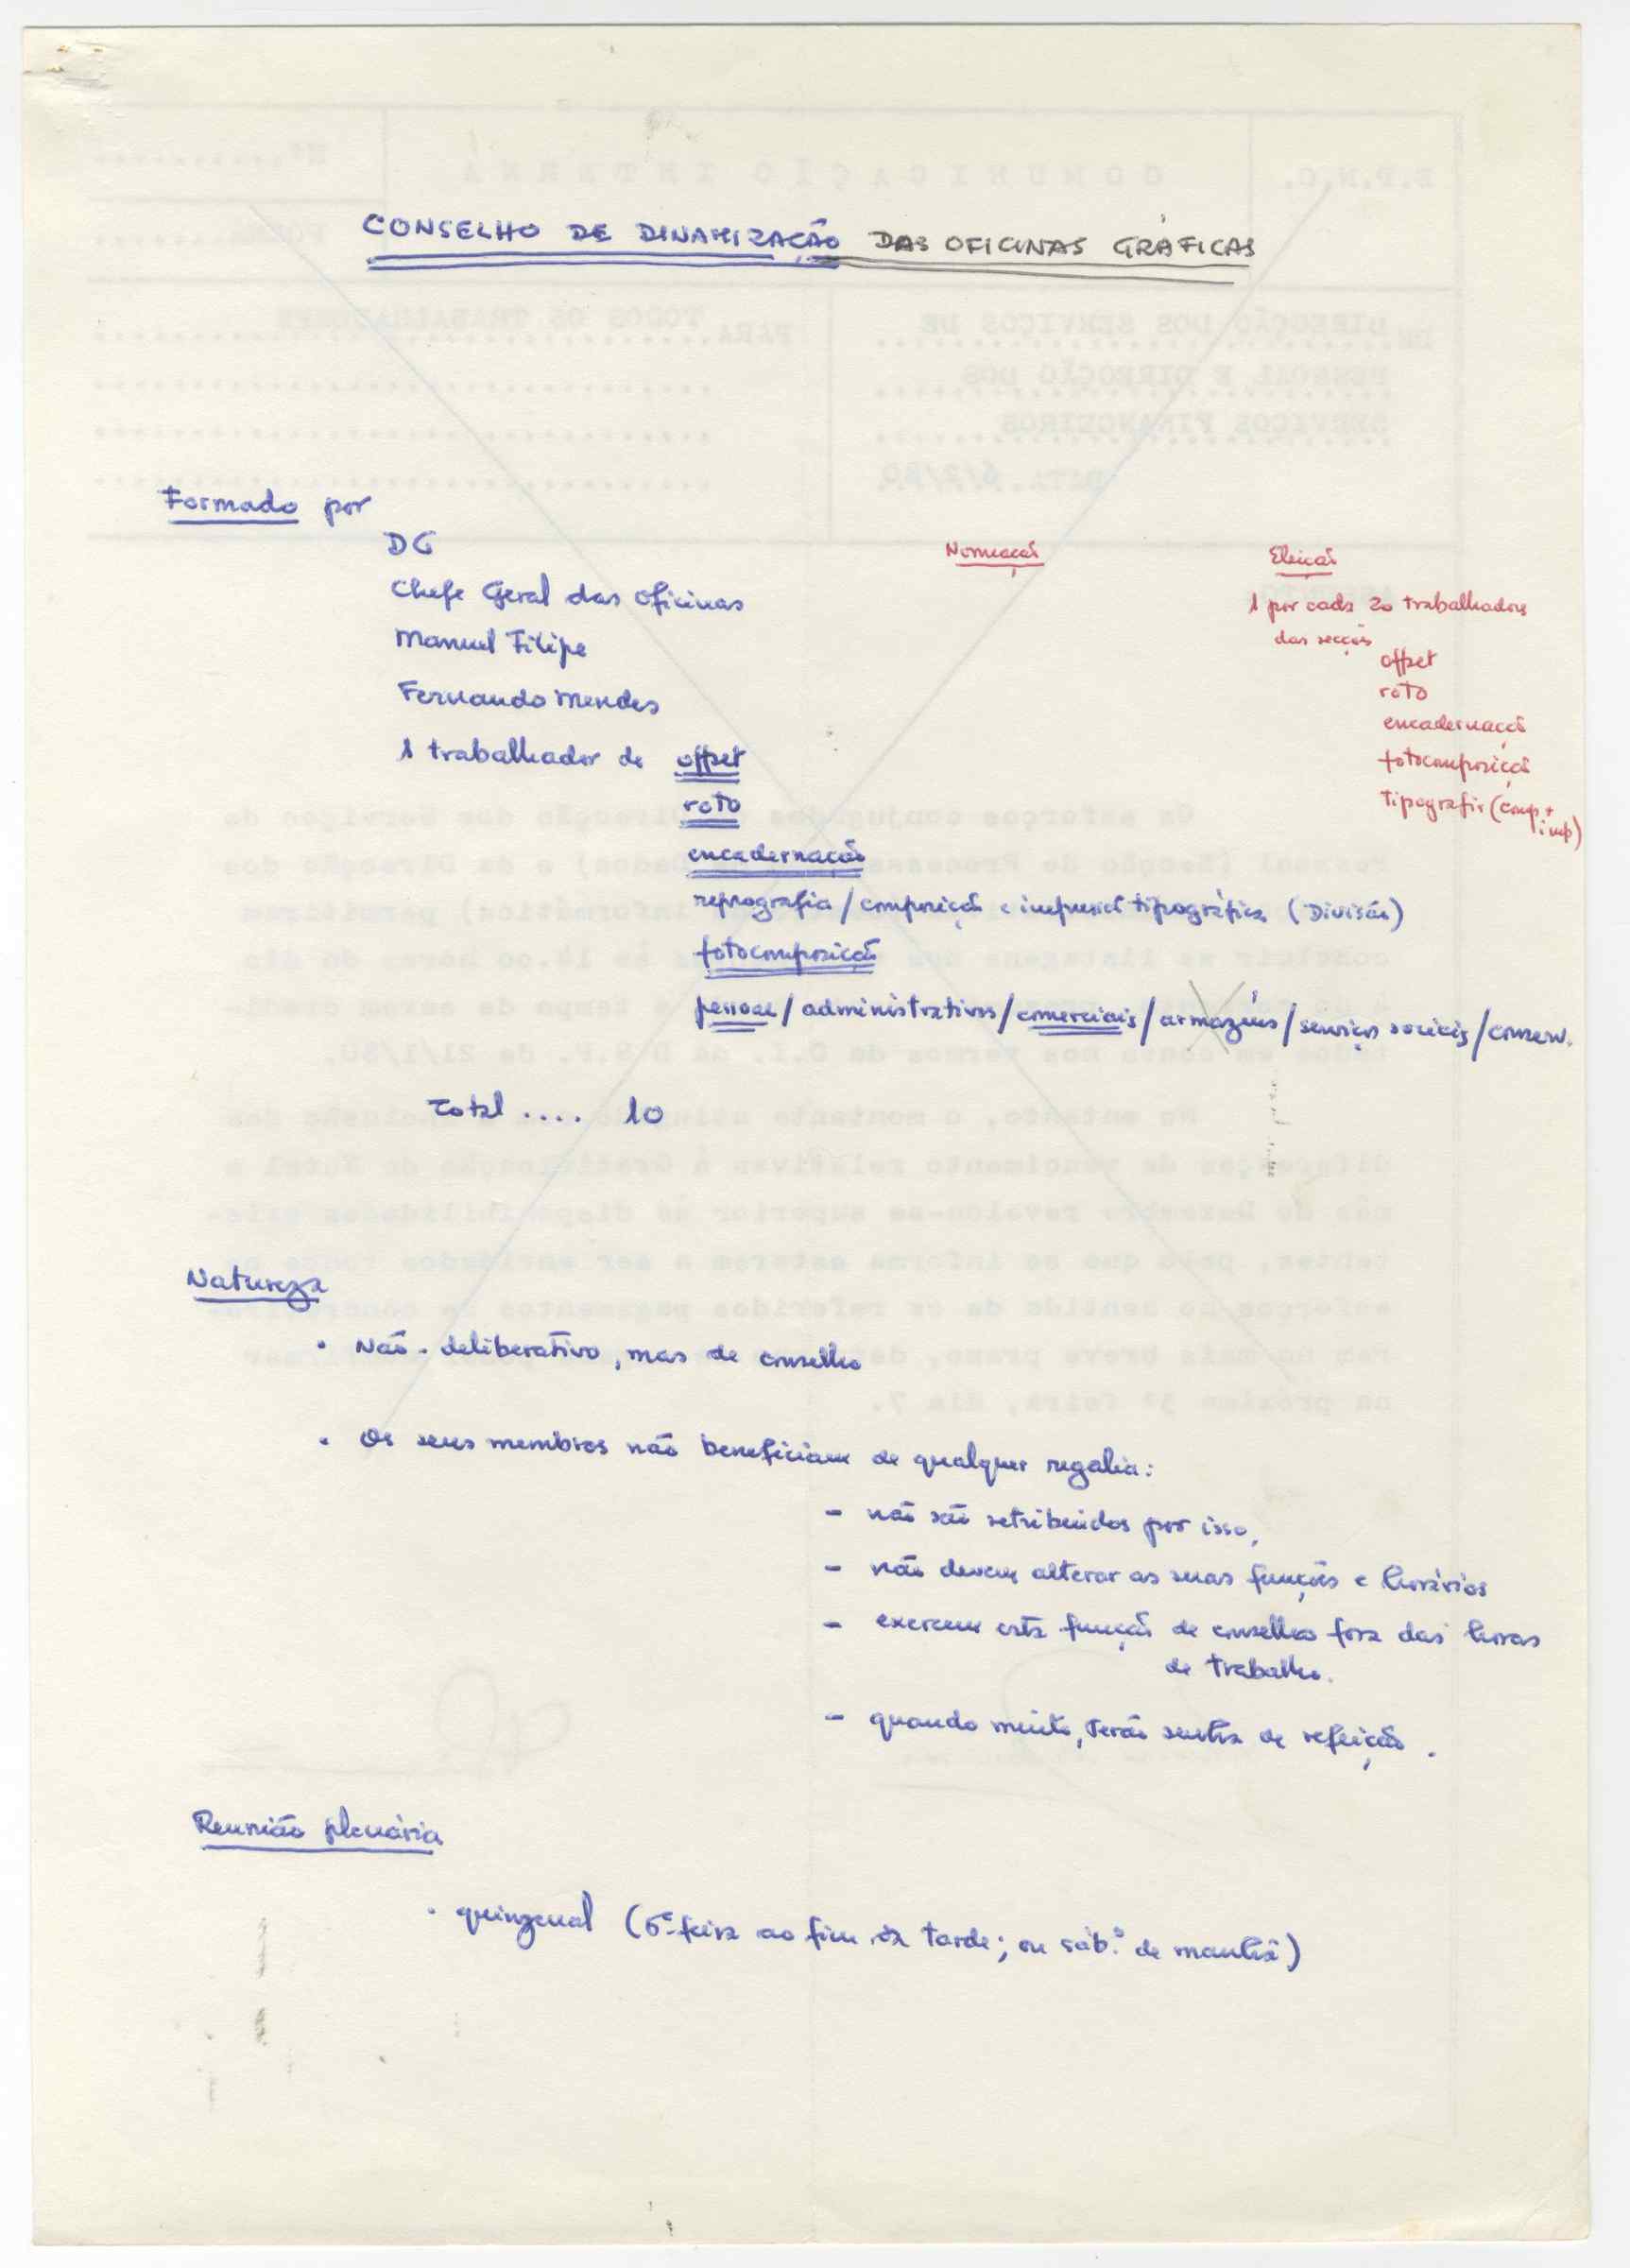 CONSELHO DE DINAMIZAÇÃO DAS OFICINAS GRÁFICAS
Formado por
DG
Nomeação
Eleição
Chefe Geral das Oficinas
1 por cada 20 trabalhadores
das secções
Manuel Filipe
offset
Fernando Mendes
roto
encadernação
1 trabalhador de offset
fotocomposição
roto
tipografia (comp + imp)
encadernação
reprografia / composição e impressão tipográfica (Divisão)
fotocomposição
pessoal / administrativos / comerciais / armazéns / serviços sociais / conserv.
Total .... 10
Natureza
• Não-deliberativo, mas de conselho
• Os seus membros não beneficiam de qualquer regalia:
- não são retribuidos por isso,
- não devem alterar as suas funções e horários
- exercem esta função de conselho fora das horas
de trabalho.
- quando muito, terão senha de refeição.
Reunião plenária
• quinzenal (6ª feira ao fim da tarde; ou sáb.º de manhã)